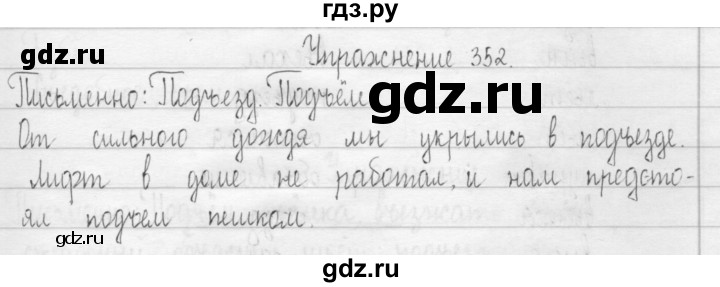 гдз.ру
gdz.ru
Упражнение 352.
Письменно: Подъезд. Подъём
gdz.ru
От сильного дождя мы укрылись в подъезде.
Лифт в доме не работал, и нам предсто-
ял подъем пешком.
gdz.ru
gdz.ru